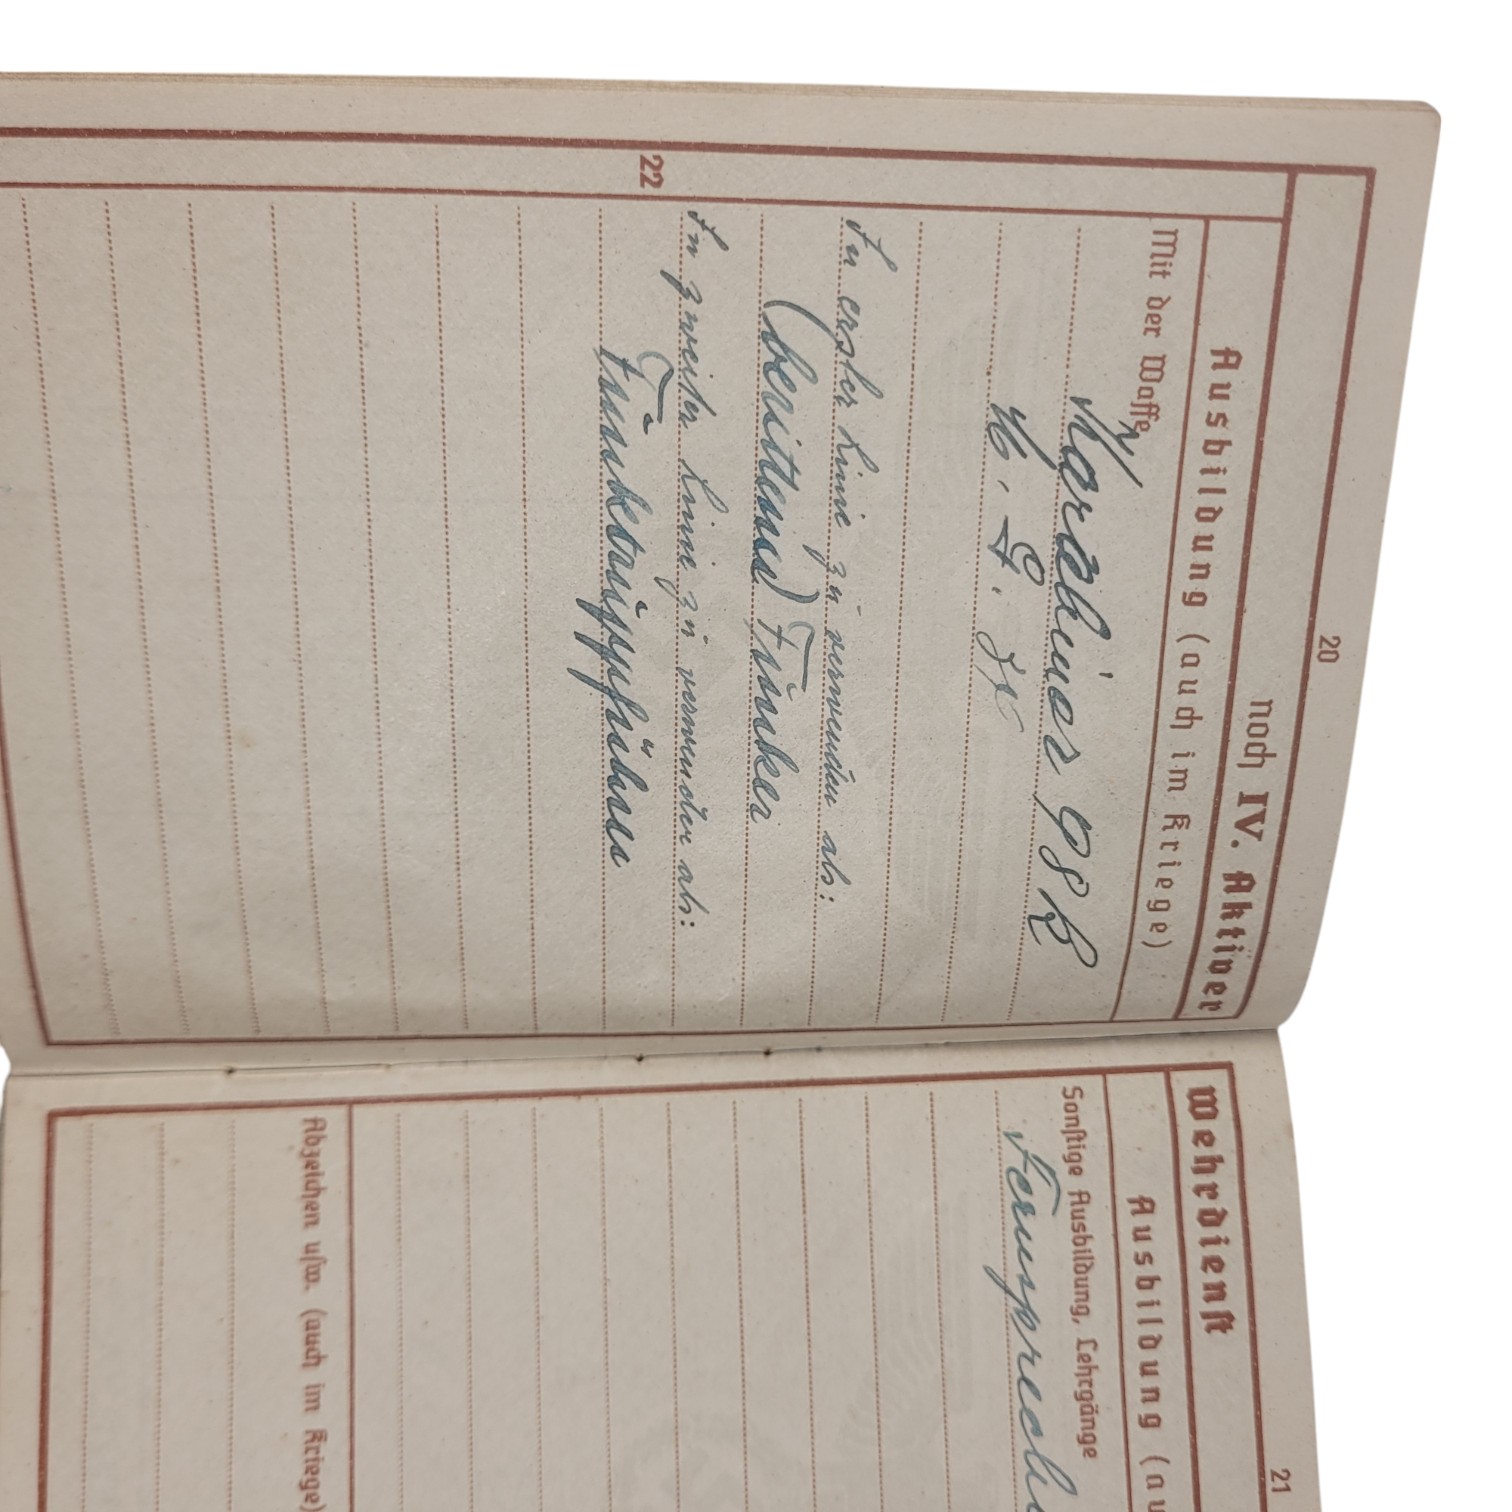 20
noch IV. Aktiver
Ausbildung (auch im Kriege)
22
Mit der Waffe
Karabiner 98 k
In erster Linie zu verwenden als:
(berittener) Funker
In zweiter Linie zu verwenden als:
Funktruppführer
21
Wehrdienst
Ausbildung (au
Sonstige Ausbildung, Lehrgänge
Fernspreche
Abzeichen usw. (auch im Kriege)